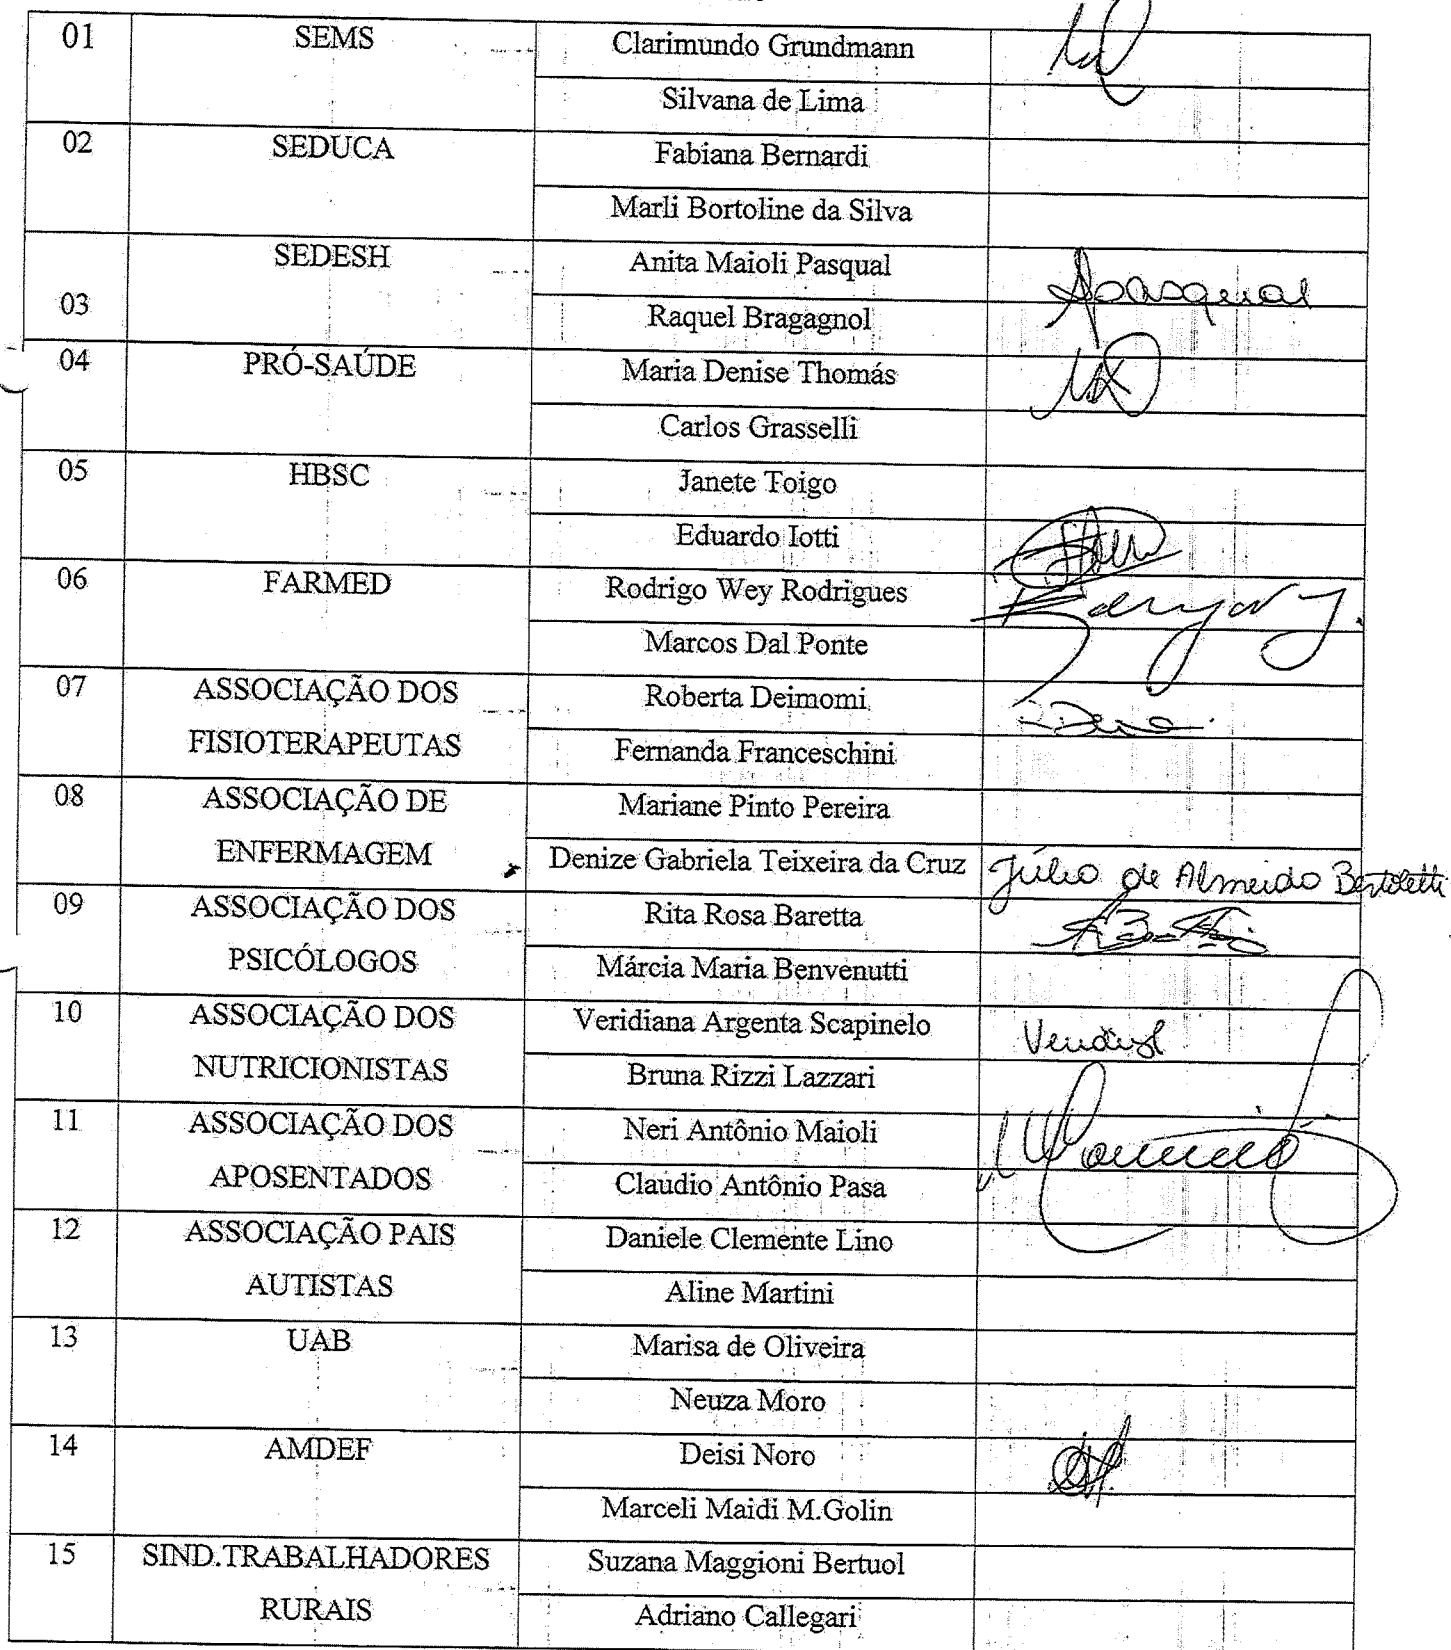 01 SEMS Clarimundo Grundmann
Silvana de Lima
02 SEDUCA Fabiana Bernardi
Marli Bortoline da Silva
SEDESH Anita Maioli Pasqual Apasqual
03 Raquel Bragagnol
04 PRÓ-SAÚDE Maria Denise Thomás
Carlos Grasselli
05 HBSC Janete Toigo
Eduardo Iotti
06 FARMED Rodrigo Wey Rodrigues
Marcos Dal Ponte
07 ASSOCIAÇÃO DOS Roberta Deimomi
FISIOTERAPEUTAS Fernanda Franceschini
08 ASSOCIAÇÃO DE Mariane Pinto Pereira
ENFERMAGEM Denize Gabriela Teixeira da Cruz Júlio de Almeida Bertoletti
09 ASSOCIAÇÃO DOS Rita Rosa Baretta
PSICÓLOGOS Márcia Maria Benvenutti
10 ASSOCIAÇÃO DOS Veridiana Argenta Scapinelo
NUTRICIONISTAS Bruna Rizzi Lazzari
11 ASSOCIAÇÃO DOS Neri Antônio Maioli
APOSENTADOS Claudio Antônio Pasa
12 ASSOCIAÇÃO PAIS Daniele Clemente Lino
AUTISTAS Aline Martini
13 UAB Marisa de Oliveira
Neuza Moro
14 AMDEF Deisi Noro
Marceli Maidi M.Golin
15 SIND.TRABALHADORES Suzana Maggioni Bertuol
RURAIS Adriano Callegari